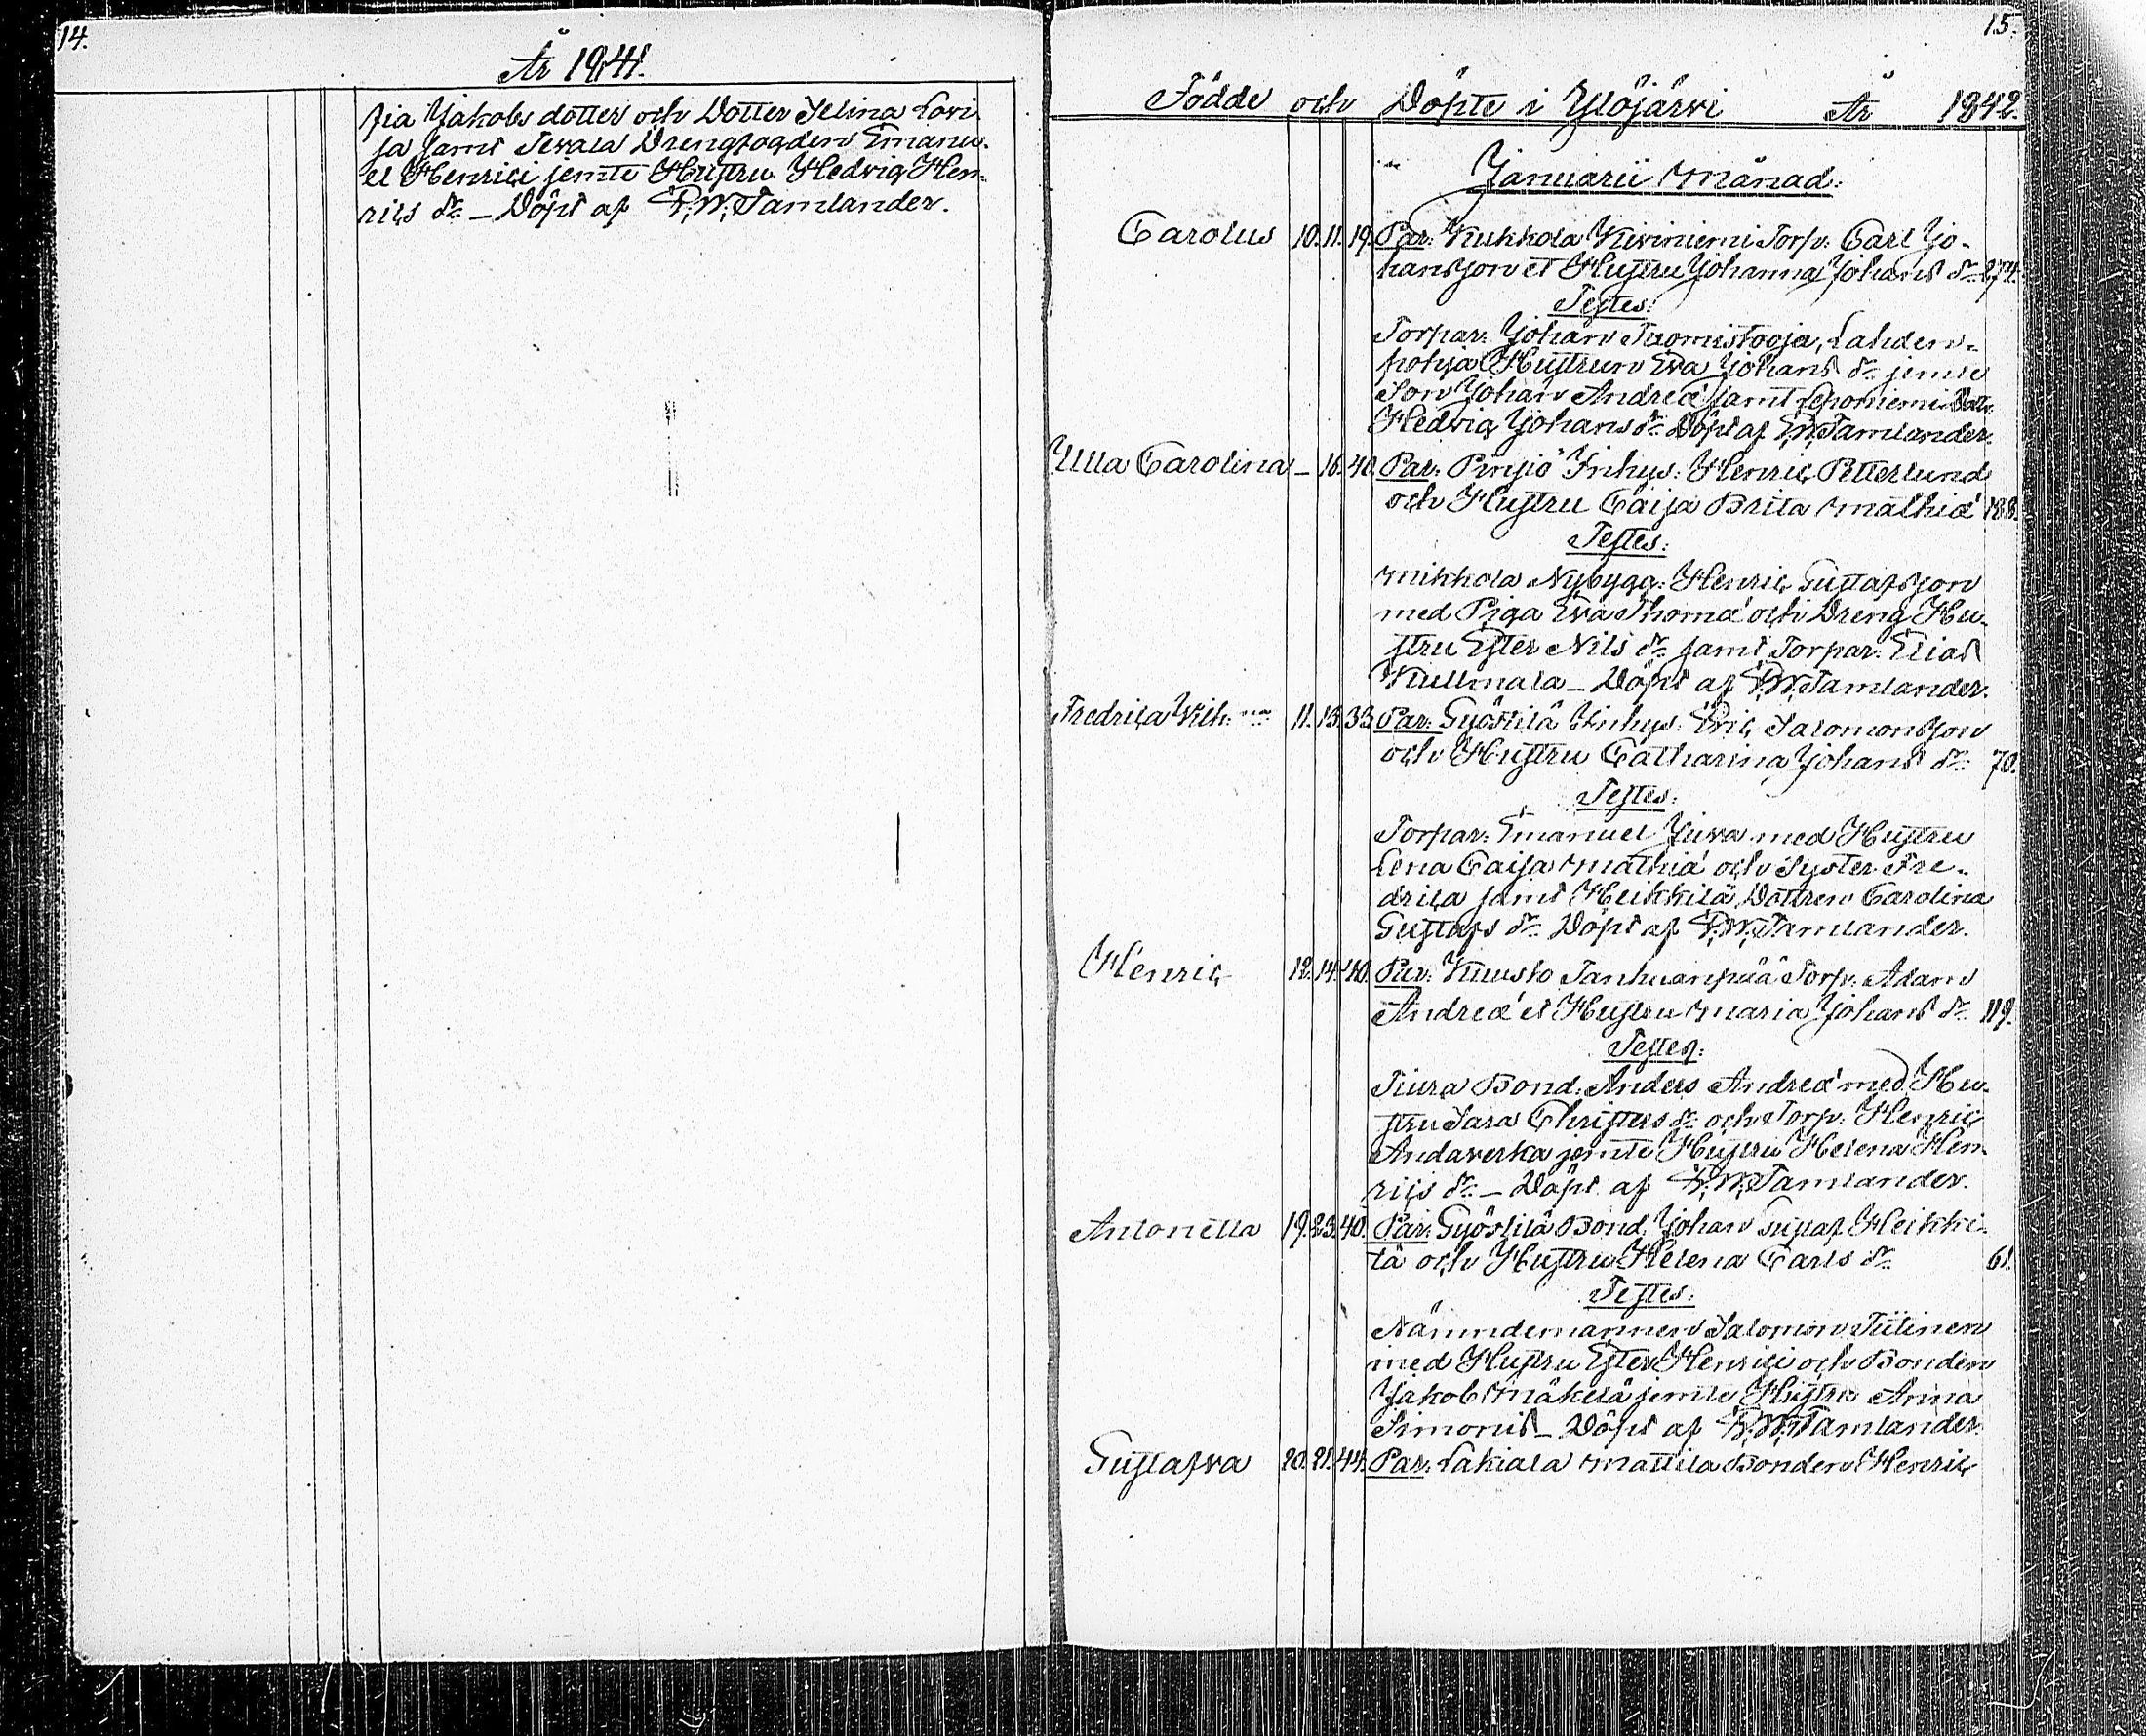 14.
År 1841.
fia Jakobs dotter och Dotter Selina Lovi
sa samt Tevala Drengfogden Emanu-
el Henrici jemte Hustru Hedvig Hen-
rics dr — Döpt af P. W. Tamlander.
15.
Födde och Döpte i Ylöjärvi År 1842.
Januarii Månad.
Carolus 10. 11. 19. Par: Kukkola Kiviniemi Torp: Carl Jo-
hansson et Hustru Johanna Johans dr 274.
Testes:
Torpar: Johan Tuomistooja, Lahden-
pohja Hustrun Eva Johans dr jemte
Son Johan Andreæ samt Leponiemi Dott:
Hedvig Johans dr Döpt af P. W. Tamlander.
Ulla Carolina — 16. 40. Par: Pinjiö Inhys: Henric Petterlund
och Hustru Caisa Brita Mathiæ 188.
Testes:
Mikkola Nybygg: Henric Gustafsson
med Piga Eva Thomæ och Dreng Hu-
stru Ester Nils dr samt Torpar: Elias
Kullmala — Döpt af P. W. Tamlander.
Fredrica Wilh:na 11. 13. 33. Par: Gyöstilä Inhys: Eric Salomonsson
och Hustru Catharina Johans dr 70.
Testes:
Torpar: Emanuel Juva med Hustru
Lena Caisa Mathiæ och Syster Fre-
drica samt Heikkilä Dottren Carolina
Gustafs dr Döpt af P. W. Tamlander.
Henric 12. 14. 40. Par: Kuusto Tanhuanpää Torp: Adam
Andreæ et Hustru Maria Johans dr 119.
Testes:
Tiura Bond: Anders Andreæ med Hu-
stru Sara Christers dr och Torp: Henric
Andaverka jemte Hustru Helena Hen-
rics dr — Döpt af P. W. Tamlander.
Antonetta 19. 23. 40. Par: Gyöstilä Bond: Johan Gustaf Heikki-
lä och Hustru Helena Carls dr 61.
Testes:
Nämndemannen Salomon Tiilinen
med Hustru Ester Henrici och Bonden
Jakob Mäkelä jemte Hustru Anna
Simonis — Döpt af P. W. Tamlander.
Gustafva 20. 21. 44. Par: Lakiala Mattila Bonden Henric